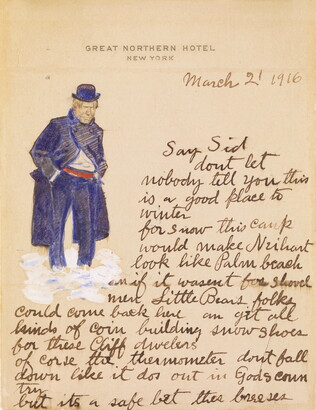 GREAT NORTHERN HOTEL
NEW YORK
March 2! 1916
Say Sid
dont let
nobody tell you this
is a good place to
winter
for snow this camp
would make Neihart
look like Palm beach
an if it wasent for shovel
men Little Bears folks
could come back here an git all
kinds of coin building snow shoes
for these Cliff dwelers
of corse the thermometer dont fall
down like it dos out in Gods coun
try
but its a safe bet the breeses